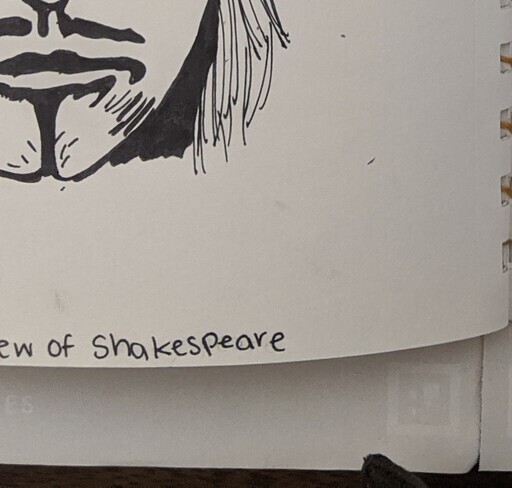 ew of Shakespeare
ES